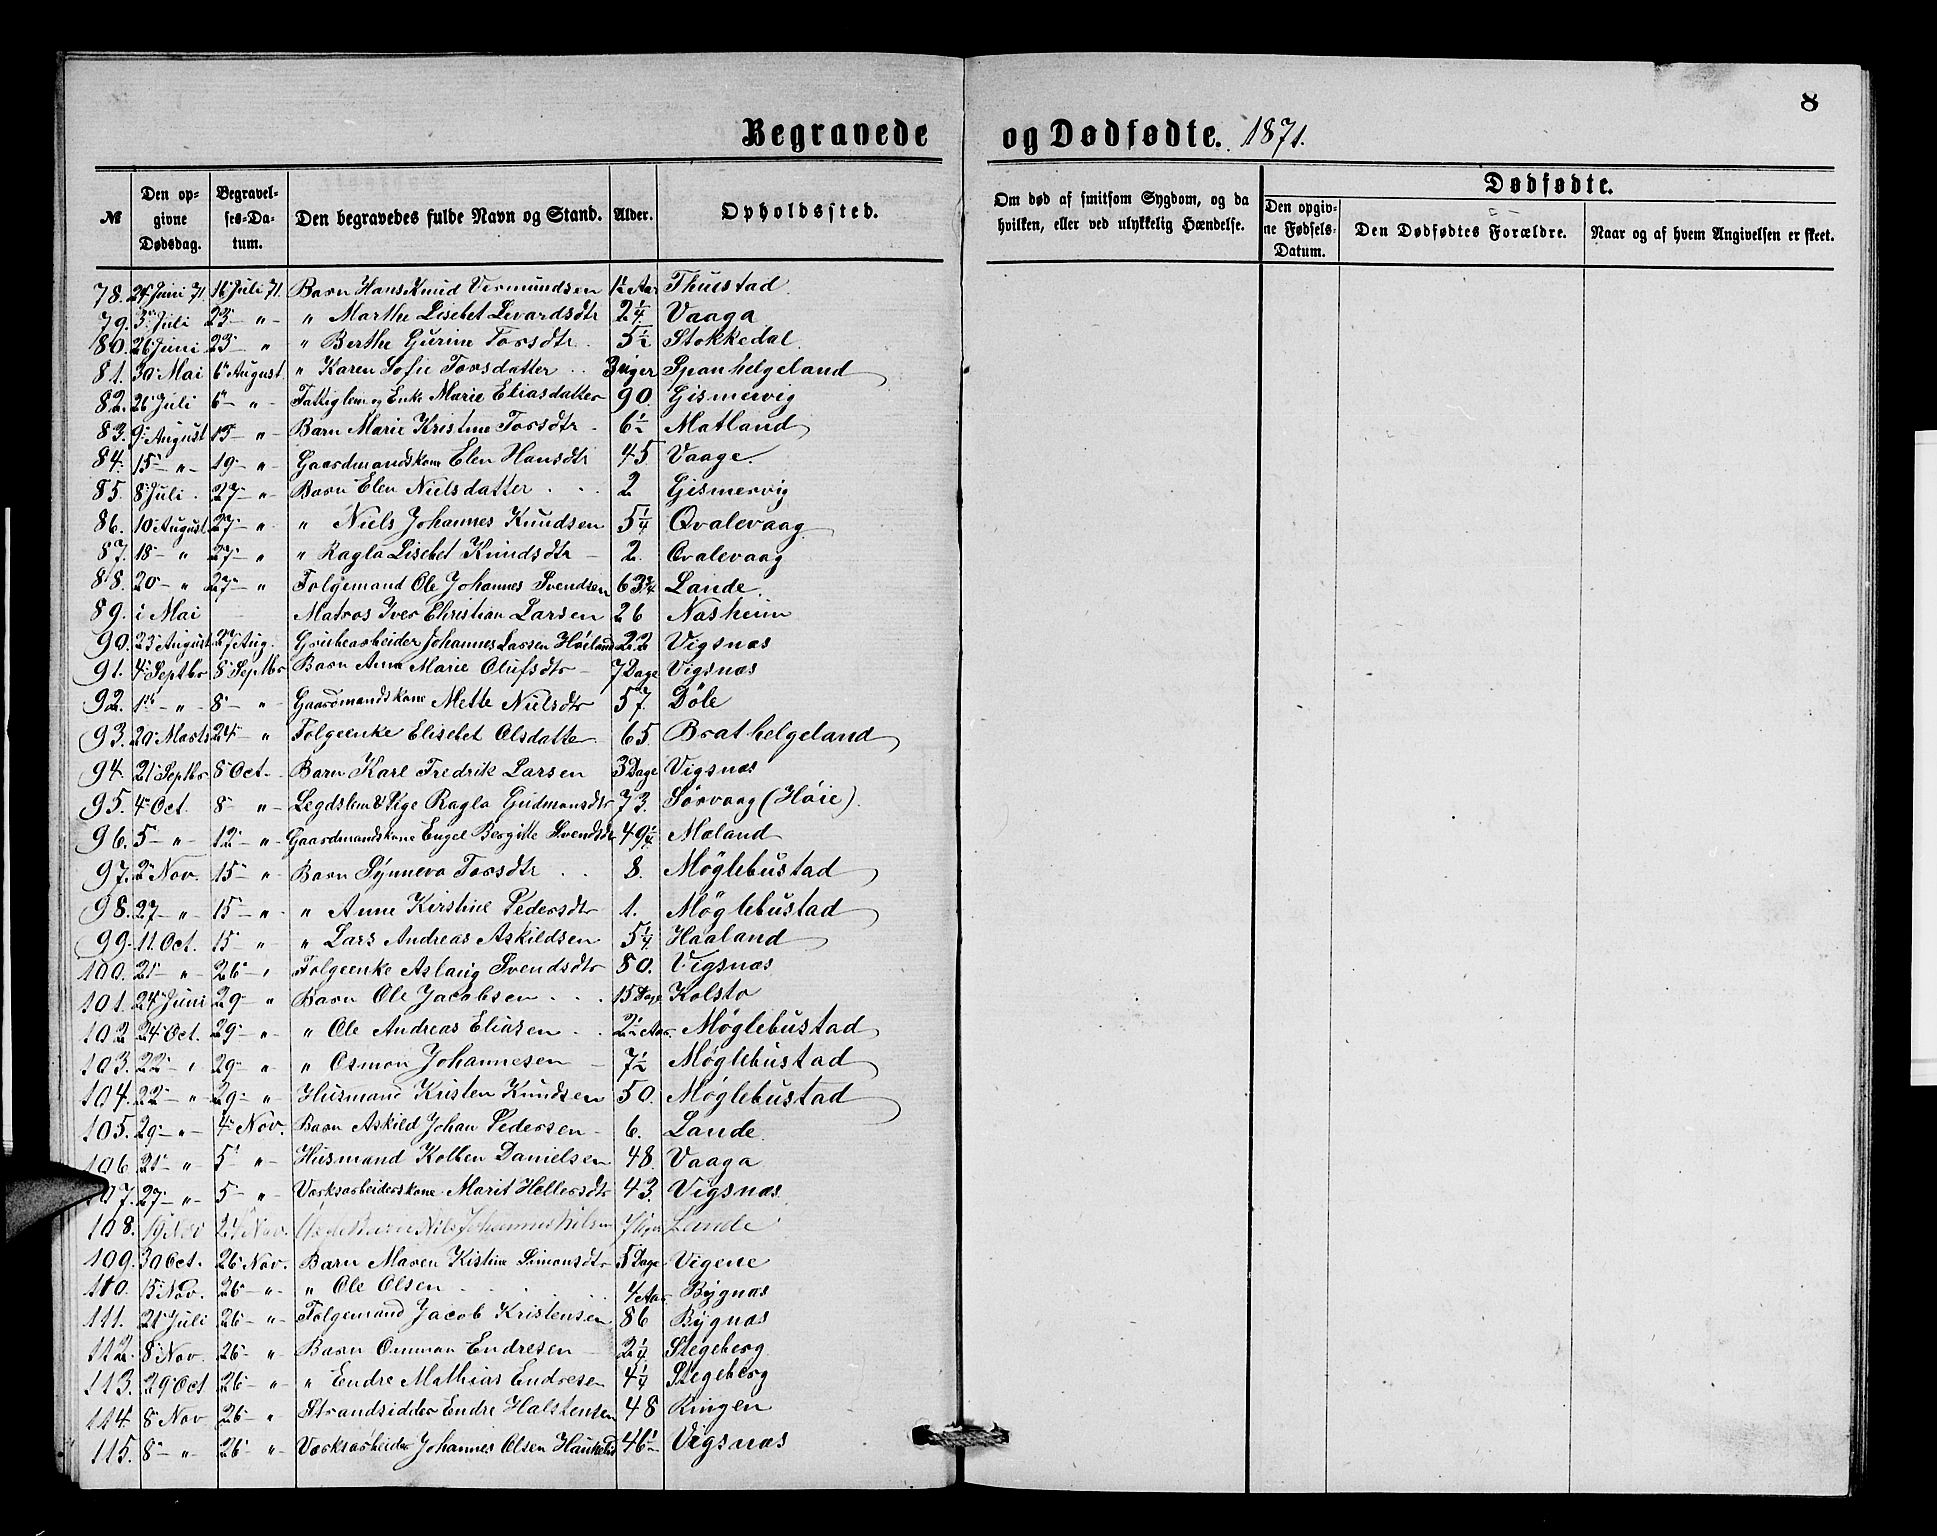 8
Begravede og Dødfødte. 1871.
№ Den opgivne Dødsdag. Begravelses-Datum. Den begravedes fulde Navn og Stand. Alder. Opholdssted. Om død af smitsom Sygdom, og da hvilken, eller ved ulykkelig Hændelse. Dødfødte. Den opgivne Fødsels-Datum. Den Dødfødtes Forældre. Naar og af hvem Angivelsen er skeet.
78. 24 Juni 71 16 Juli 71. Barn Hans Knud Vermundsen 1½ Aar Thuestad
79. 3 Juli 23 - " - " Marthe Lisebet Sivardsdtr 2¼ Vaaga
80. 26 Juni 23 - " " Berthe Gurine Torsdtr 5½ Stokkedal
81. 30 Mai 6 August " Karen Sofie Torsdatter 3 Uger Spanhelgeland
82. 26 Juli 6 - " - Fattiglem og Enke Marie Eliasdatter 90. Gismervig
83. 9 August 13 - " - Barn Marie Kristine Torsdtr 6½ Matland
84. 15 - " - 19 - " - Gaardmandskone Elen Hansdtr 45 Vaage.
85. 8 Juli 27 - " Barn Elen Nielsdatter 2 Gismervig
86. 10 August 27 - " " Niels Johannes Knudsen 5¼ Qvalevaag
87. 18 - " 27 - " " Ragla Lisebet Knudsdtr 2. Qvalevaag
88. 20 - " 27 - " Folgemand Ole Johannes Svendsen 63¾ Lande
89. i Mai Matros Iver Christian Larsen 26 Nasheim
90. 23 August 27 Aug. Grubearbeider Johannes Larsen Høieland 22 Vigsnæs
91. 4 Septbr 8 Septbr Barn Anna Marie Olufsdtr 7 Dage Vigsnæs
92. 1ste - " - 8 - " Gaardmandskone Mette Nielsdtr 57. Døle
93. 20 Marts 24 - " Folgeenke Elisebet Olsdatter 65 Brathelgeland
94. 21 Septbr 8 Oct. Barn Karl Fredrik Larsen 3 Dage Vigsnæs
95. 4 Oct. 8 - " - Legdslem & Pige Ragla Gudmansdtr 73. Sørvaag (Høie).
96. 5 - " 12 - " - Gaardmandskone Engel Bergitte Svendsdtr 49¼ Mæland
97. 2 Nov. 15 - " - Barn Synneva Torsdtr 8. Møglebustad
98. 27 - " - 15 - " - " Anne Kirstine Pedersdtr 1. Møglebustad
99. 11 Oct. 15 - " " Lars Andreas Askildsen 5¼ Haaland
100. 21 - " - 26 - " Folgeenke Aslaug Svendsdtr 80. Vigsnæs
101. 24 Juni 29 - " Barn Ole Jacobsen 15 Dage Kolstø
102. 24 Oct. 29 - " " Ole Andreas Eliasen 2½ Aar. Møglebustad
103. 22 - " 29 - " " Osmon Johannesen 7½ Møglebustad
104. 22 - " - 29 - " - Husmand Kristen Knudsen 50. Møglebustad
105. 29 - " - 4 Nov. Barn Askild Johan Pedersen 6. Lande.
106 21 - " 5 - " - Husmand Kolben Danielsen 48. Vaaga
107. 27 - " - 5 - " Værksarbeiderskone Marit Hellersdtr 43. Vigsnæs
108. 19 24 Nov. Nils Johannes Nilsen Lande
109. 30 Oct. 26 Nov. Barn Maren Kistine Simonsdtr 5 Dage Vigene
110. 15 Nov. 26 - " - " Ole Olsen 4 Aar Bygnæs
111. 21 Juli 26 - " - Folgemand Jacob Kristensen 86 Bygnæs
112. 8 Nov. 26 - " Barn Omman Endresen 2¼ Stegeberg
113. 29 Oct 26 - " " Endre Mathias Endresen 4¼ Stegeberg
114. 8 Nov 26 - " Strandsidder Endre Halstensen 48 Ringen
115. 8 - " 26 - " - Værksarbeider Johannes Olsen Haukelid 46½ Vigsnæs